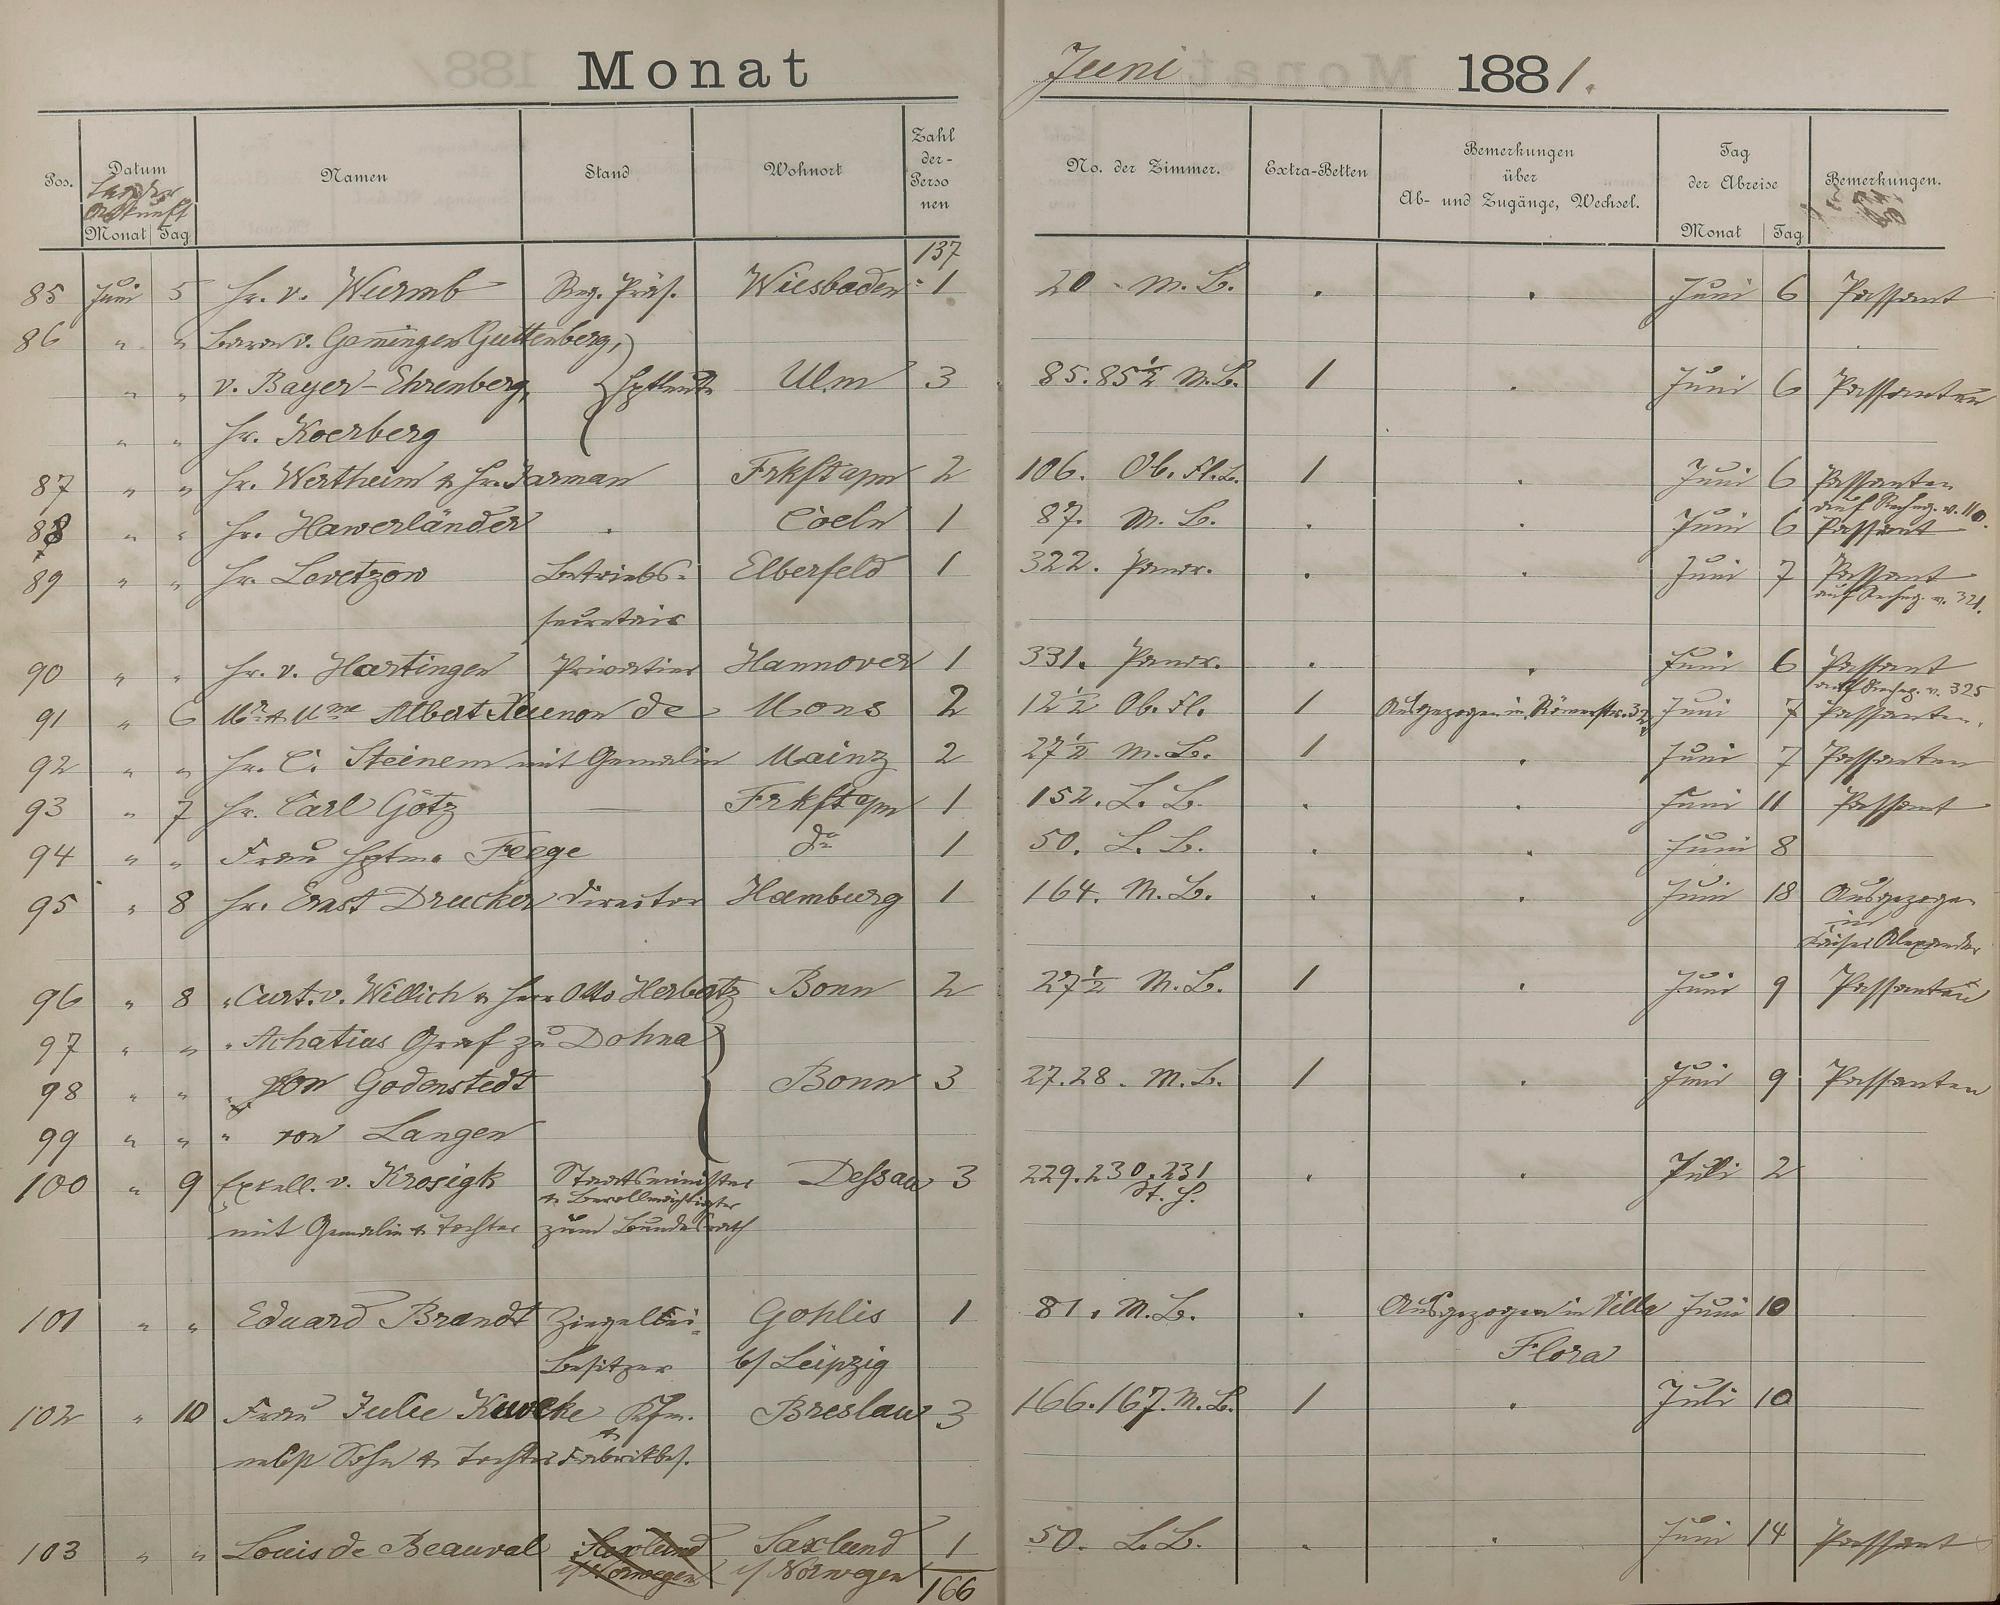 Monat Juni 1881.
Pos. Datum der Ankunft Monat Tag Namen Stand Wohnort Zahl der Personen No. der Zimmer. Extra-Betten Bemerkungen über Ab- und Zugänge, Wechsel. Tag der Abreise Monat Tag Bemerkungen.
137
85 Juni 5 Hr. v. Wurmb Reg. Präs. Wiesbaden 1 20 M. B. . . Juni 6 Passant
86 " " Baron v. Gemmingen Guttenberg,
" " v. Bayer-Ehrenberg, Hptleute Ulm 3 85.85½ M.B. 1 . Juni 6 Passanten
" " Hr. Koerberg
87 " " Hr. Wertheim & Hr. Jarman Frkft a/m 2 106. Ob. Fl. B. 1 . Juni 6 Passanten
auf Rechng. v. 110.
88 " " Hr. Hawerländer . Coeln 1 87. M. B. . . Juni 6 Passant
89 " " Hr. Levetzow Betriebs- Elberfeld 1 322. Pandr. . . Juni 7 Passant
auf Rechng. v. 321.
secretair
90 " " Hr. v. Hartingen Privatier Hannover 1 331. Pandr. . . Juni 6 Passant
auf Rechng. v. 325
91 " 6 Mr. & Mme Albert de Mons 2 12½ Ob. Fl. 1 Ausgezogen in Römerstr. 32 Juni 7 Passanten.
92 " " Hr. C. Steinem mit Gemalin Mainz 2 27½ M. B. 1 . Juni 7 Passanten
93 " 7 Hr. Carl Götz — Frkft a/m 1 152. L. B. . . Juni 11 Passant
94 " " Frau Hptm. Feege do 1 50. L. B. . . Juni 8
95 " 8 Hr. Ernst Drucker Director Hamburg 1 164. M. B. . . Juni 18 Ausgezogen
in
Kaiser Alexander
96 " 8 " Curt. v. Willich & Herr Otto Herbertz Bonn 2 27½ M. B. 1 . Juni 9 Passanten
97 " " " Achatius Graf zu Dohna
98 " " " von Godenstedt Bonn 3 27.28. M. B. 1 . Juni 9 Passanten
99 " " " von Langen
100 " 9 Excell. v. Krosigk Staatsminister Dessau 3 229.230.231 . . Juli 2
& Bevollmächtigter St. H.
mit Gemalin & Tochter zum Bundesrath
101 " " Eduard Brandt Ziegelei- Gohlis 1 81. M. B. . Ausgezogen in Villa Juni 10
Besitzer b/ Leipzig Flora
102 " 10 Frau Julie Kfm. Breslau 3 166.167. M. B. 1 . Juli 10
&
nebst Sohn & Tochter Fabrikbes.
103 " " Louis de Beauval Saxlund Saxlund 1 50. L. B. . . Juni 14 Passant
i/ Norwegen i/ Norwegen
166